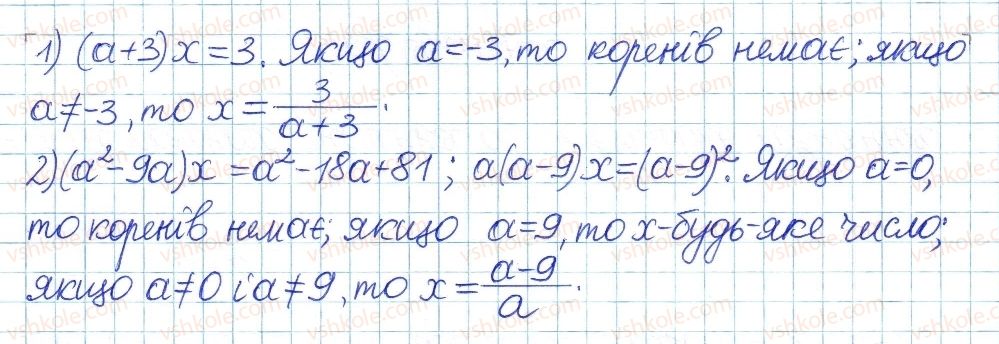 1) (a+3)x=3. Якщо a=-3, то коренів немає; якщо
a≠-3, то x=3/(a+3).
2) (a²-9a)x=a²-18a+81; a(a-9)x=(a-9)². Якщо a=0,
то коренів немає; якщо a=9, то x-будь-яке число;
якщо a≠0 і a≠9, то x=(a-9)/a.